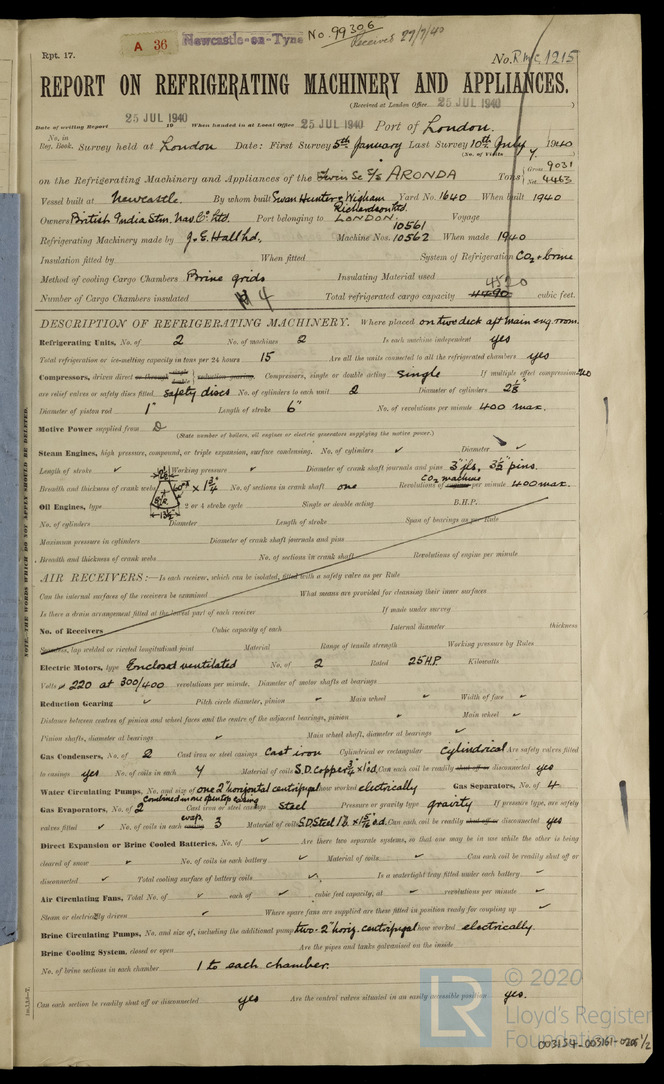 Rpt. 17.
A 36
Newcastle-on-Tyne
No. 99306
Received 27/7/40
No. R.M.C. 1215
REPORT ON REFRIGERATING MACHINERY AND APPLIANCES.
(Received at London Office 25 JUL 1940 )
Date of writing Report 25 JUL 1940 19 When handed in at Local Office 25 JUL 1940 Port of London.
No. in Reg. Book. Survey held at London Date: First Survey 5th January Last Survey 10th July 1940
(No. of Visits 7.
on the Refrigerating Machinery and Appliances of the Twin Sc S/S ARONDA Tons Gross 9031 Net 4463
Vessel built at Newcastle. By whom built Swan Hunter & Wigham Richardson Ltd. Yard No. 1640 When built 1940
Owners British India Stm. Nav. Co. Ltd. Port belonging to LONDON. Voyage
Refrigerating Machinery made by J. & E. Hall Ltd. Machine Nos. 10561 10562 When made 1940
Insulation fitted by When fitted System of Refrigeration CO2 + brine
Method of cooling Cargo Chambers Brine grids Insulating Material used
Number of Cargo Chambers insulated 4 Total refrigerated cargo capacity 4520 cubic feet.
DESCRIPTION OF REFRIGERATING MACHINERY. Where placed on two deck aft main eng. room.
Refrigerating Units, No. of 2 No. of machines 2 Is each machine independent yes
Total refrigeration or ice-melting capacity in tons per 24 hours 15 Are all the units connected to all the refrigerated chambers yes
Compressors, driven direct or through single double reduction gearing. Compressors, single or double acting single If multiple effect compression no
are relief valves or safety discs fitted safety discs No. of cylinders to each unit 2 Diameter of cylinders 2⅛"
Diameter of piston rod 1" Length of stroke 6" No. of revolutions per minute 400 max.
Motive Power supplied from
(State number of boilers, oil engines or electric generators supplying the motive power.)
Steam Engines, high pressure, compound, or triple expansion, surface condensing. No. of cylinders ✓ Diameter ✓
Length of stroke ✓ Working pressure ✓ Diameter of crank shaft journals and pins 3" jls, 3½" pins.
Breadth and thickness of crank webs × 1¾" No. of sections in crank shaft one Revolutions of CO2 machine per minute 400 max.
Oil Engines, type 2 or 4 stroke cycle Single or double acting B.H.P.
No. of cylinders Diameter Length of stroke Span of bearings as per Rule
Maximum pressure in cylinders Diameter of crank shaft journals and pins
Breadth and thickness of crank webs No. of sections in crank shaft Revolutions of engine per minute
AIR RECEIVERS:—Is each receiver, which can be isolated, fitted with a safety valve as per Rule
Can the internal surfaces of the receivers be examined What means are provided for cleansing their inner surfaces
Is there a drain arrangement fitted at the lowest part of each receiver If made under survey
No. of Receivers Cubic capacity of each Internal diameter thickness
Seamless, lap welded or riveted longitudinal joint Material Range of tensile strength Working pressure by Rules
Electric Motors, type Enclosed ventilated No. of 2 Rated 25 H.P. Kilowatts
Volts 220 at 300/400 revolutions per minute. Diameter of motor shafts at bearings
Reduction Gearing ✓ Pitch circle diameter, pinion ✓ Main wheel ✓ Width of face ✓
Distance between centres of pinion and wheel faces and the centre of the adjacent bearings, pinion ✓ Main wheel ✓
Pinion shafts, diameter at bearings ✓ Main wheel shaft, diameter at bearings ✓
Gas Condensers, No. of 2 Cast iron or steel casings Cast iron Cylindrical or rectangular Cylindrical Are safety valves fitted
to casings yes No. of coils in each 4 Material of coils S.D. copper Can each coil be readily shut off or disconnected yes
Water Circulating Pumps, No. and size of one 2" horizontal centrifugal how worked electrically Gas Separators, No. of 4
Gas Evaporators, No. of 2 Cast iron or steel casings steel Pressure or gravity type gravity If pressure type, are safety
valves fitted ✓ No. of coils in each evap. casing 3 Material of coils S.D. Steel Can each coil be readily shut off or disconnected yes
Direct Expansion or Brine Cooled Batteries, No. of ✓ Are there two separate systems, so that one may be in use while the other is being
cleared of snow ✓ No. of coils in each battery ✓ Material of coils ✓ Can each coil be readily shut off or
disconnected ✓ Total cooling surface of battery coils ✓ Is a watertight tray fitted under each battery ✓
Air Circulating Fans, Total No. of ✓ each of ✓ cubic feet capacity, at ✓ revolutions per minute ✓
Steam or electrically driven ✓ Where spare fans are supplied are these fitted in position ready for coupling up ✓
Brine Circulating Pumps, No. and size of, including the additional pump two - 2" horiz. centrifugal how worked electrically.
Brine Cooling System, closed or open Are the pipes and tanks galvanised on the inside
No. of brine sections in each chamber 1 to each chamber.
Can each section be readily shut off or disconnected yes Are the control valves situated in an easily accessible position yes.
NOTE. THE WORDS WHICH DO NOT APPLY SHOULD BE DELETED.
LR © 2020
Lloyd's Register
Foundation
003154-003161-0205 1/2